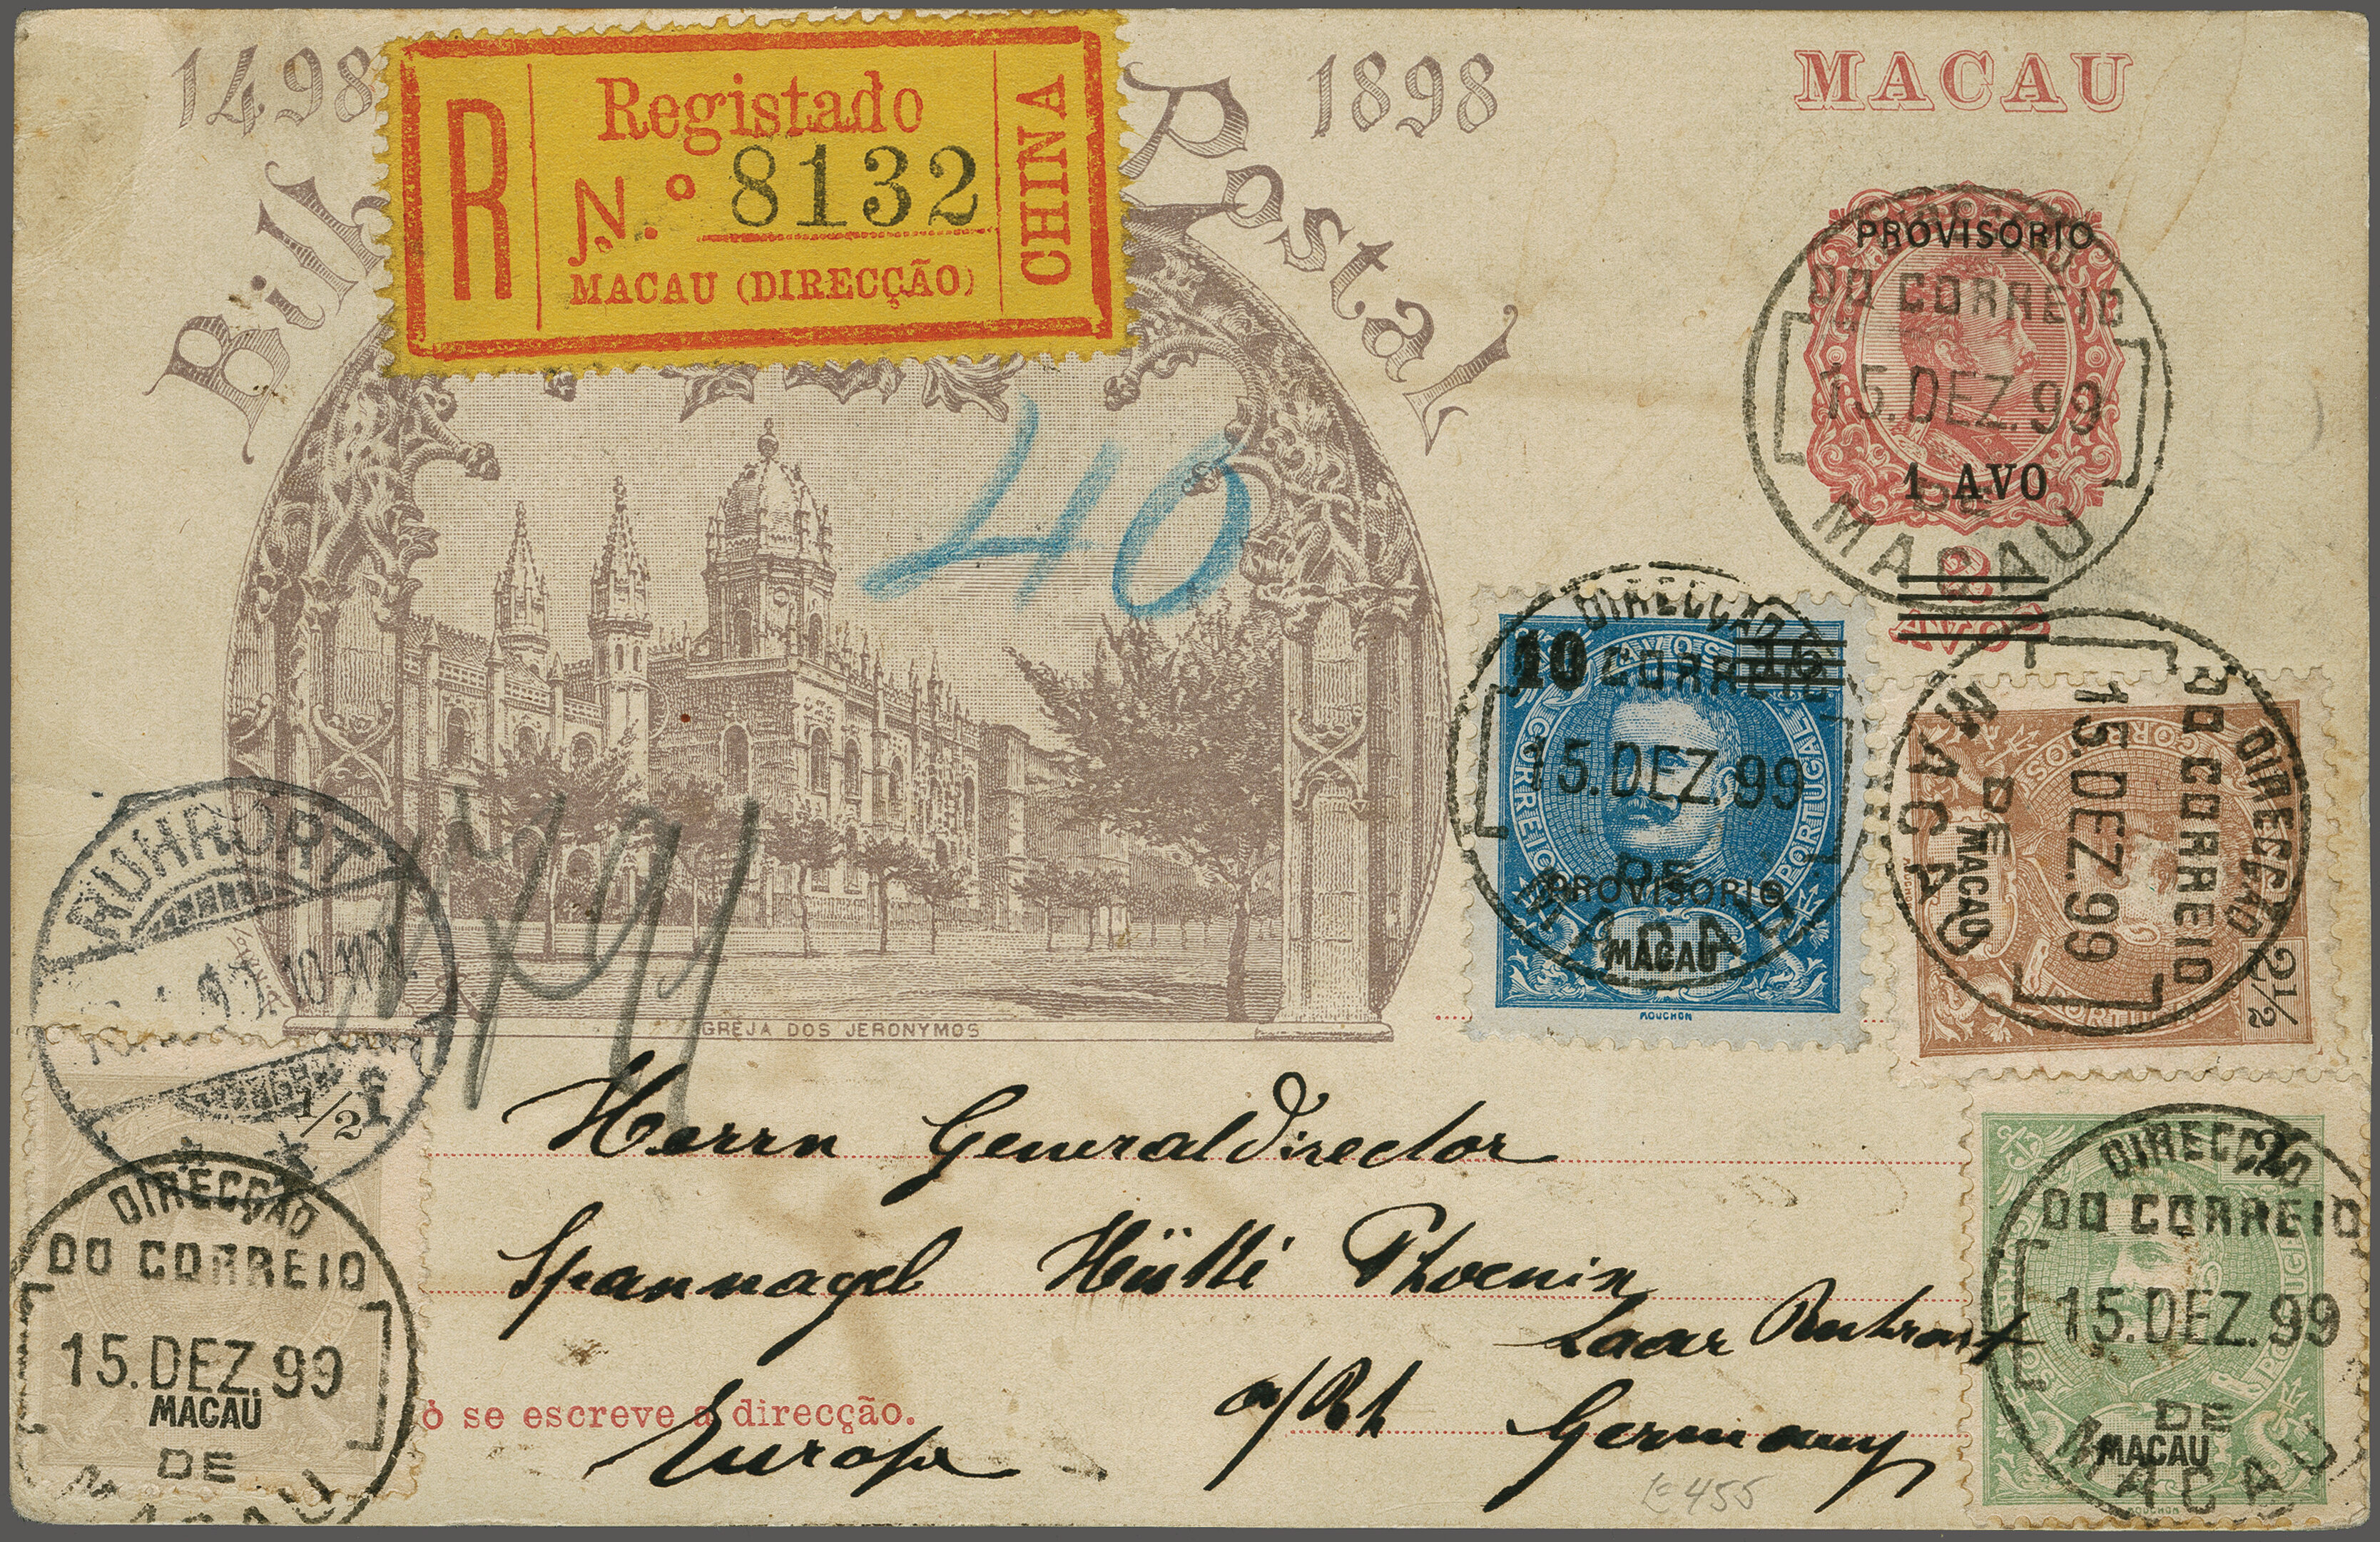 1498
1898
MACAU
Bilh
Postal
R
Registado
N.º 8132
MACAU (DIRECÇÃO)
CHINA
PROVISORIO
DO CORREIO
15.DEZ.99
1 AVO
DE
MACAU
2
AVOS
40
10
16
AVOS
DIRECÇÃO
CORREIO
15.DEZ.99
CORREIO
PORTUGAL
DE
PROVISORIO
MACAU
MACAU
MOUCHON
DIRECÇÃO
DO CORREIO
15 DEZ.99
DE
MACAU
MACAU
CORREIO
PORTUGAL
2 1/2
RUHRORT
IGREJA DOS JERONYMOS
1/2
DIRECÇÃO
DO CORREIO
15.DEZ.99
MACAU
DE
MACAU
Herrn Generaldirector
Spannagel Hütte Phoenix
Laar Ruhrort
a/Rh Germany
Europa
ó se escreve a direcção.
2
DIRECÇÃO
DO CORREIO
15.DEZ.99
PORTUGAL
DE
MACAU
MACAU
MOUCHON
455